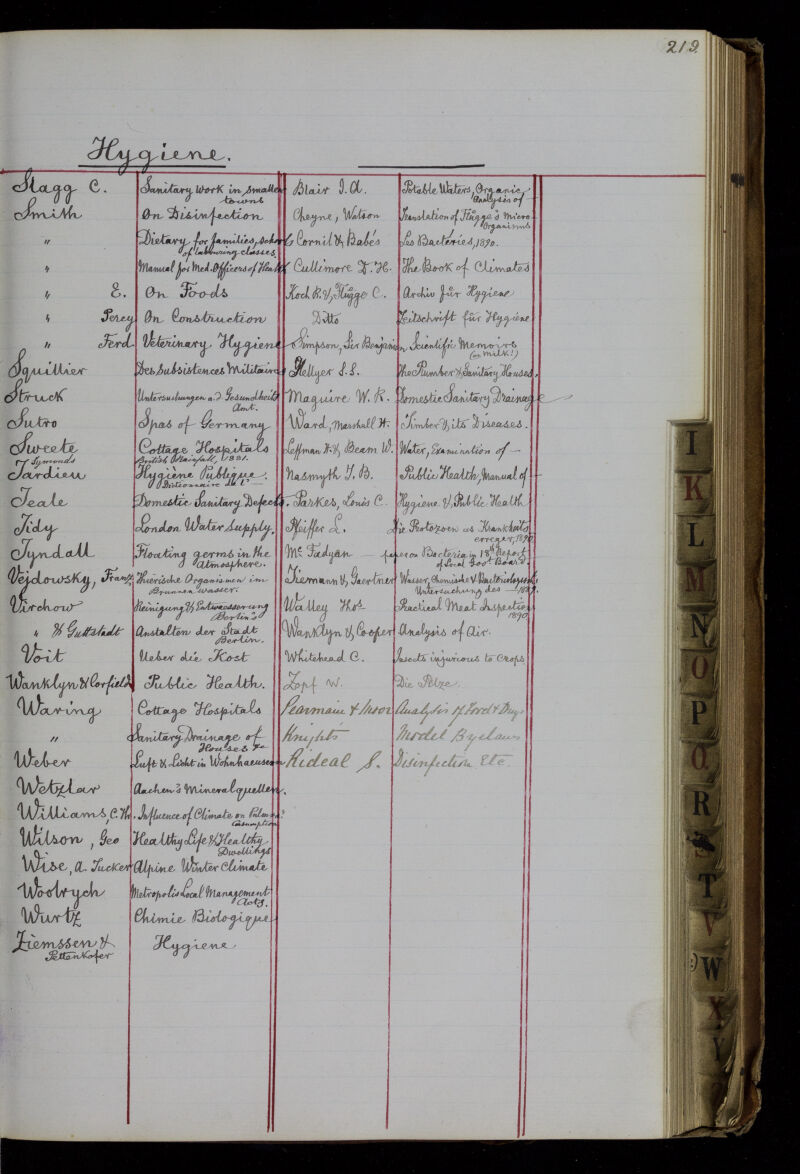 219.
Hygiene.
Stagg C. Sanitary Work in smaller towns
Smith On Disinfection
" Dietary for families, schools of labouring classes.
" Manual for Med. Officers of Health
" E. On Foods
" Percy On Construction
" Ferd Veterinary Hygiene
Squillier Des Subsistences Militaires
Struck Untersuchungen a. d. Gesundheits Amt.
Sutro Spas of Germany
Sweete Cottage Hospitals
Symonds British Rainfall, 1881.
Tardieu Hygiène Publique. Dictionnaire de l' —
Teale Domestic Sanitary Defects.
Tidy London Water Supply.
Tyndall Floating germs in the Atmosphere.
Vejdowsky, Franz Thierische Organismen im Brunnen wasser.
Virchow Reinigung & Entwasserung Berlin's
" & Guttstadt Anstalten der Stadt Berlin.
Voit Ueber die Kost
Wanklyn & Corfield Public Health.
Waring Cottage Hospitals
" Sanitary Drainage of Houses &c
Weber Luft & Licht in Wohnhaeusern
Wetzlar Aachen's Mineralquellen.
Williams, C. Th. Influence of Climate on Pulmon? Consumption
Wilson, Geo Healthy Life & Healthy Dwellings
Wise, A. Tucker Alpine Winter Climate
Woolrych Metropolis Local Management Acts.
Wurtz Chimie Biologique
Ziemssen & Pettenkofer Hygiene
Blair J. A. Potable Waters, Organic Analysis of —
Cheyne, Watson Translation of Flügge's Micro Organisms
Cornil & Babes Les Bacteries, 1890.
Cullimore D. H. The Book of Climates
Koch R. & Flügge C. Archiv für Hygiene
Ditto Zeitschrift für Hygiene
Simpson, Sir Benjamin Scientific Memoirs (on milk!)
Hellyer S. S. The Plumber & Sanitary Houses.
Maguire W. R. Domestic Sanitary Drainage
Ward, Marshall H. Timber & its Diseases.
Leffman H. & Beam W. Water, Examination of —
Nasmyth T. B. Public Health, Manual of —
Parkes, Louis C. Hygiene & Public Health
Pfeiffer L. Die Protozoen als Krankheits erreger, 1890
McFadyan — paper on Bacteria in 18th Report of Local Govt Board.
Tiemann & Gaertner Wasser, Chemische & Bacteriologische Untersuchung des — 1889.
Walley Thos Practical Meat Inspection 1890
Wanklyn & Cooper Analysis of Air.
Whitehead C. Insects injurious to Crops
Zopf W. Die Pilze.
Pearmain & Moor Analysis of Food & Drugs
Knights Model Byelaws
Rideal S. Disinfection Etc.
I
K
L
M
N
O
P
Q
R
S
T
V
W
X
Y